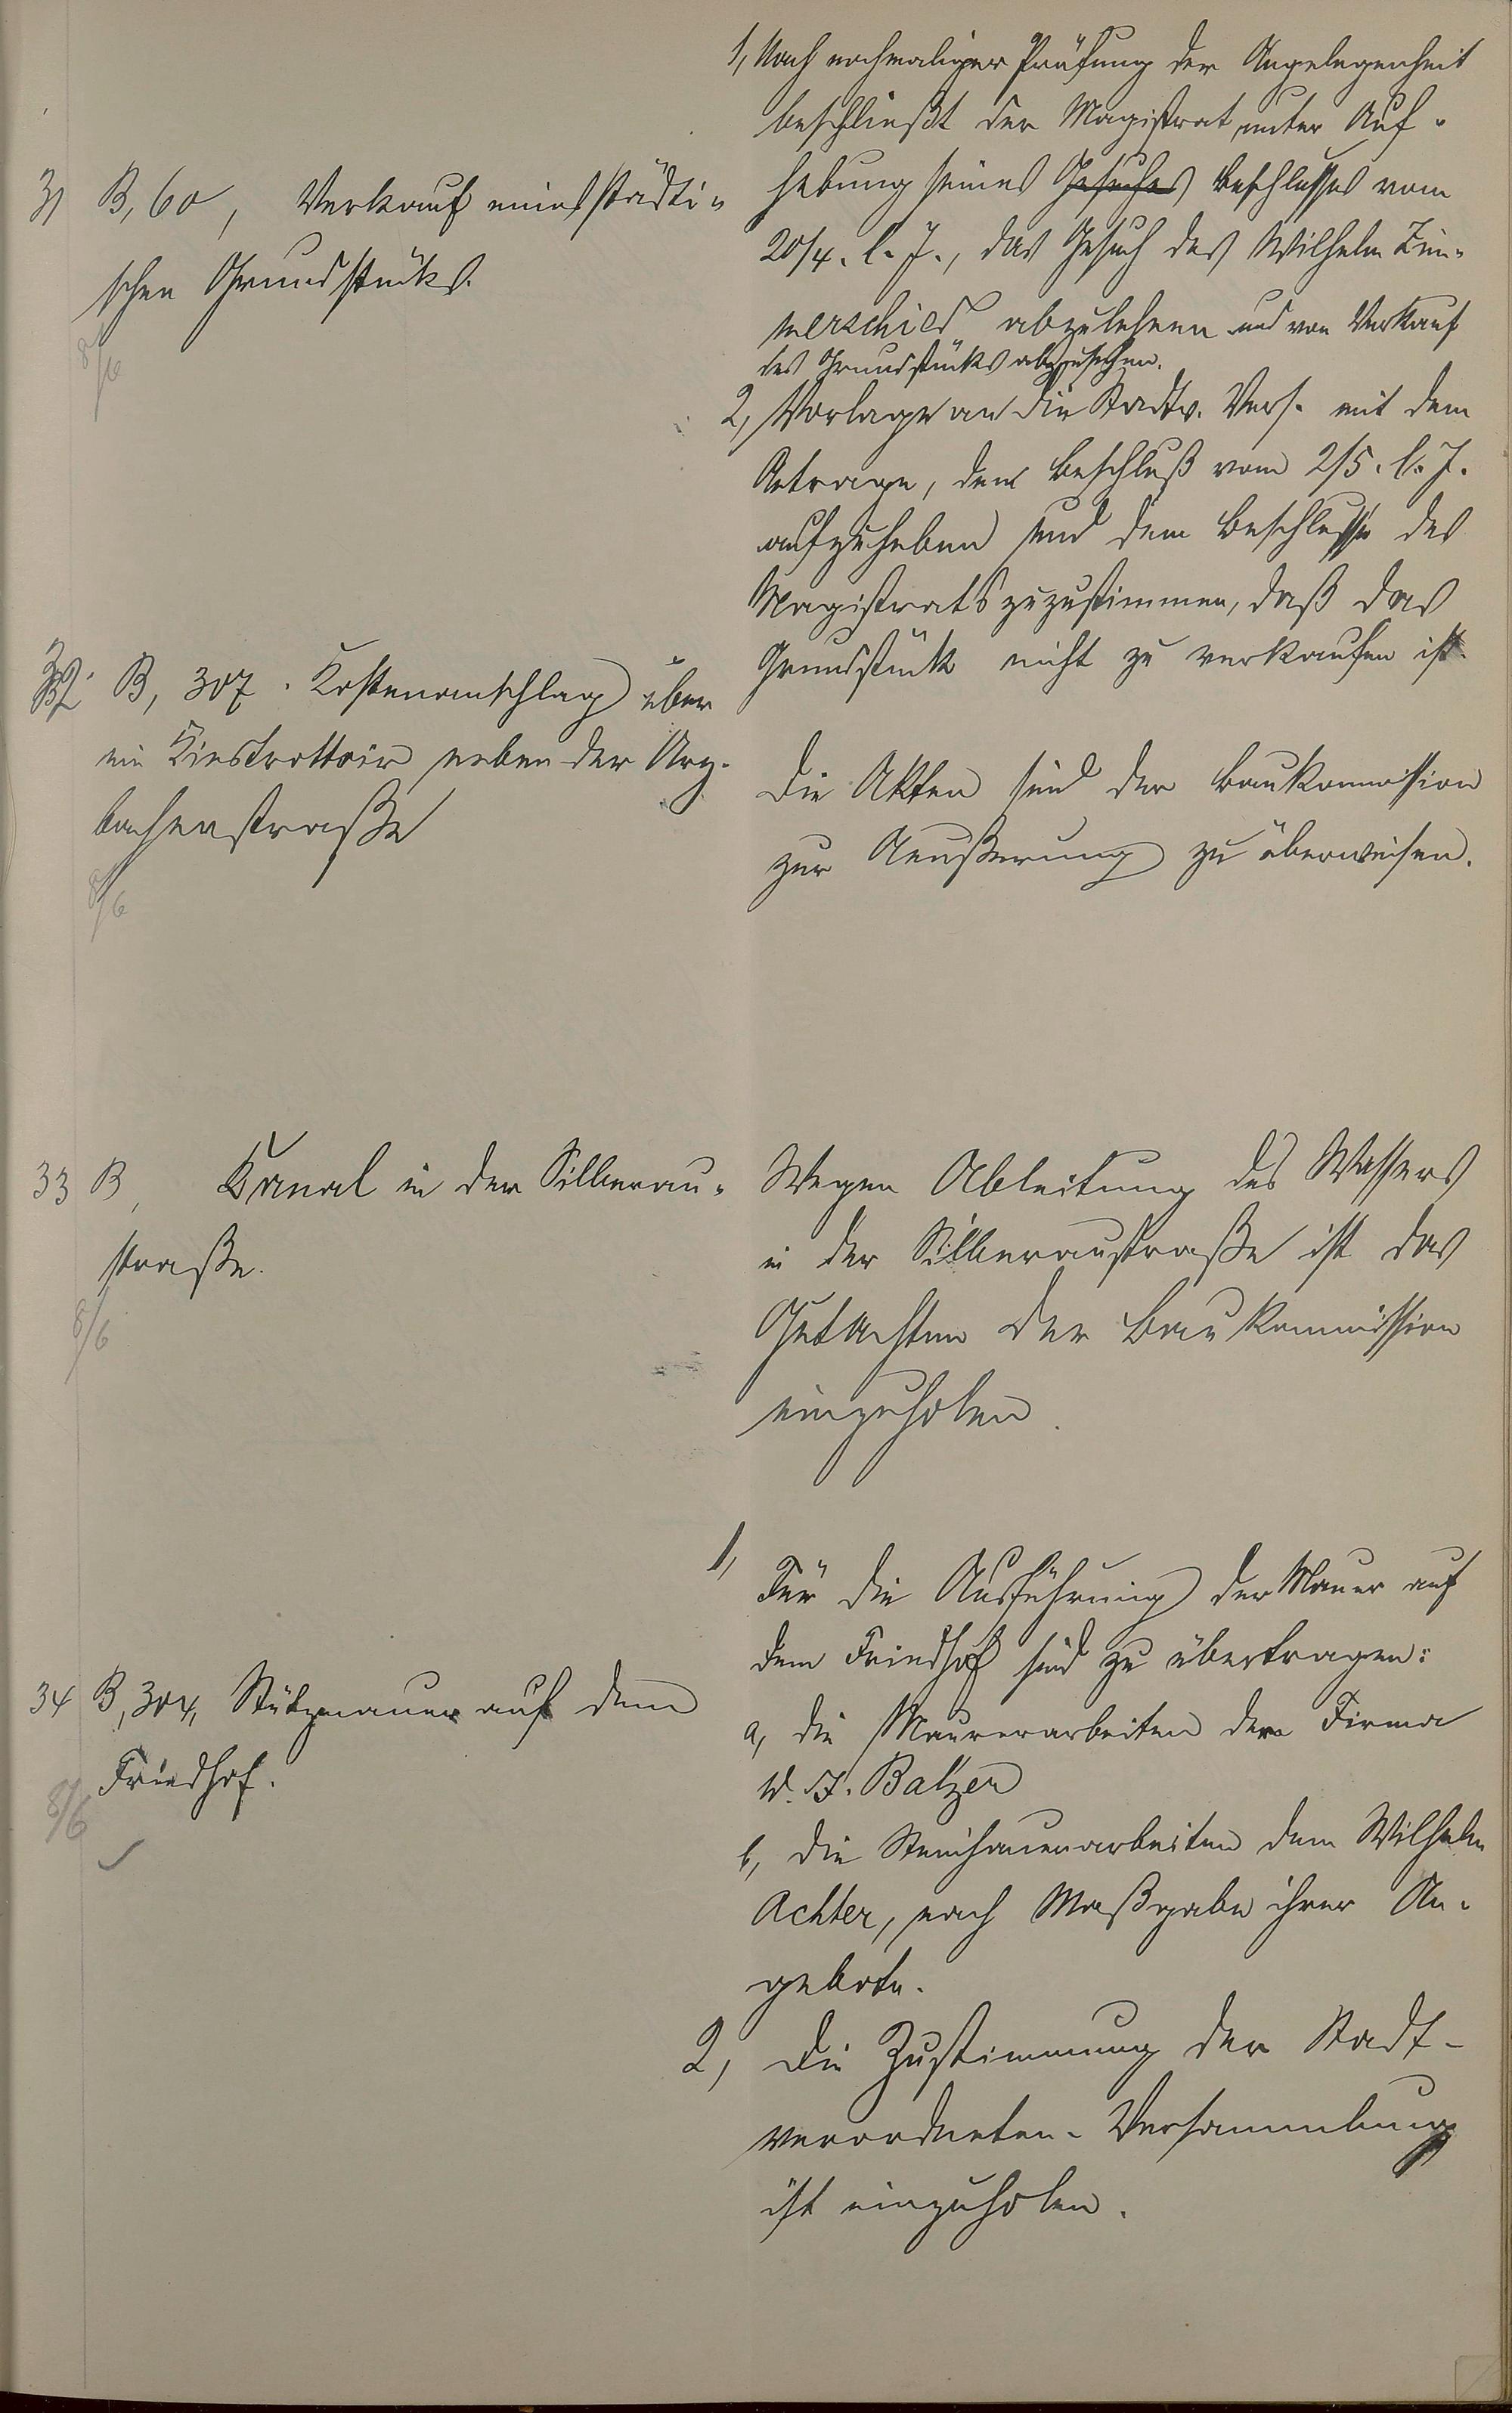 31 B, 60, Verkauf eines städti-
schen Grundstücks.
8/6
1, Nach nochmaliger Prüfung der Angelegenheit
beschließt der Magistrat unter Auf-
hebung seines Gesuches Beschlusses vom
20/4. l. J., das Gesuch des Wilhelm Zim-
merschied abzulehnen und von Verkauf
des Grundstücks abzusehen.
2, Vorlage an die Stadtv. Vers. mit dem
Antrage, den Beschluß vom 2/5. l. J.
aufzuheben und dem Beschlusse des
Magistrats zuzustimmen, daß das
Grundstück nicht zu verkaufen ist.
32. B, 307. Kostenanschlag über
ein Kiestrottoir neben der Arz-
bacherstraße
8/6
Die Akten sind der Baukommission
zur Aeußerung zu überweisen.
33 B, Kanal in der Silberau-
straße.
8/6
Wegen Ableitung des Wassers
in der Silberaustraße ist das
Gutachten der Baukommission
einzuholen.
34 B, 304, Stützmauer auf dem
Friedhof.
8/6
1, Für die Ausführung der Mauer auf
dem Friedhof sind zu übertragen:
a, die Maurerarbeiten der Firma
W. J. Balzer
b, die Steinhauerarbeiten dem Wilhelm
Achter, nach Maßgabe ihrer An-
gebote.
2, Die Zustimmung der Stadt-
verordneten-Versammlung
ist einzuholen.